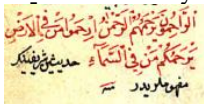 الراحمون يرحمهم الرحمن ارحموا من في الارض
يرحمكم من في السماء حديث شريفينك